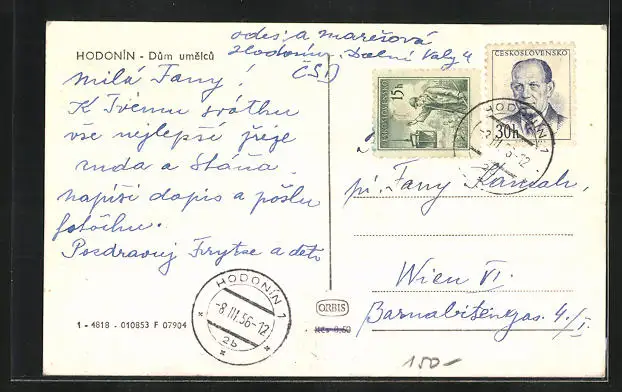 odes: a marešová
Hodonín, Dolní Valy 4
ČSR
HODONÍN - Dům umělců
Milá Fany!
K Tvému svátku
vše nejlepší přeje
Ruda a Stáňa.
napíši dopis a pošlu
fotečku.
Pozdravuj a děti
ČESKOSLOVENSKO
15h
ČESKOSLOVENSKO
30h
HODONÍN 1
-8 III 56-12
pí. Fany
Wien VI.
Barnabitengas. 4/I.
HODONÍN 1
-8 III.56-12
2b
ORBIS
Kčs 0,50
1 - 4818 - 010853 F 07904
150-